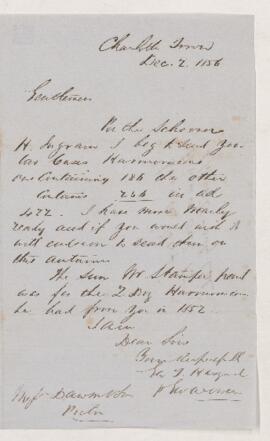 Charlotte Town
Dec. 2. 1856
Gentlemen
Per the Schooner
H. Ingram I beg to send you
Cases
one containing 186 the other
contains 266 in ad
422. I have more nearly
ready and if you would wish it
will endeavor to send them on
this autumn.
The Sum Mr Stamper paid
was for the 2 Doz
he had from you in 1852.
I am
Dear Sirs
Yours respectfully
Messrs Dawson & Son
Pictou